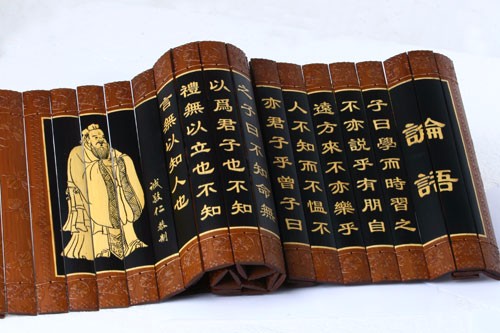 論語
子曰學而時習之
不亦說乎有朋自
遠方來不亦樂乎
人不知而不愠不
亦君子乎曾子曰
之子曰不知命無
以爲君子也不知
禮無以立也不知
言無以知人也